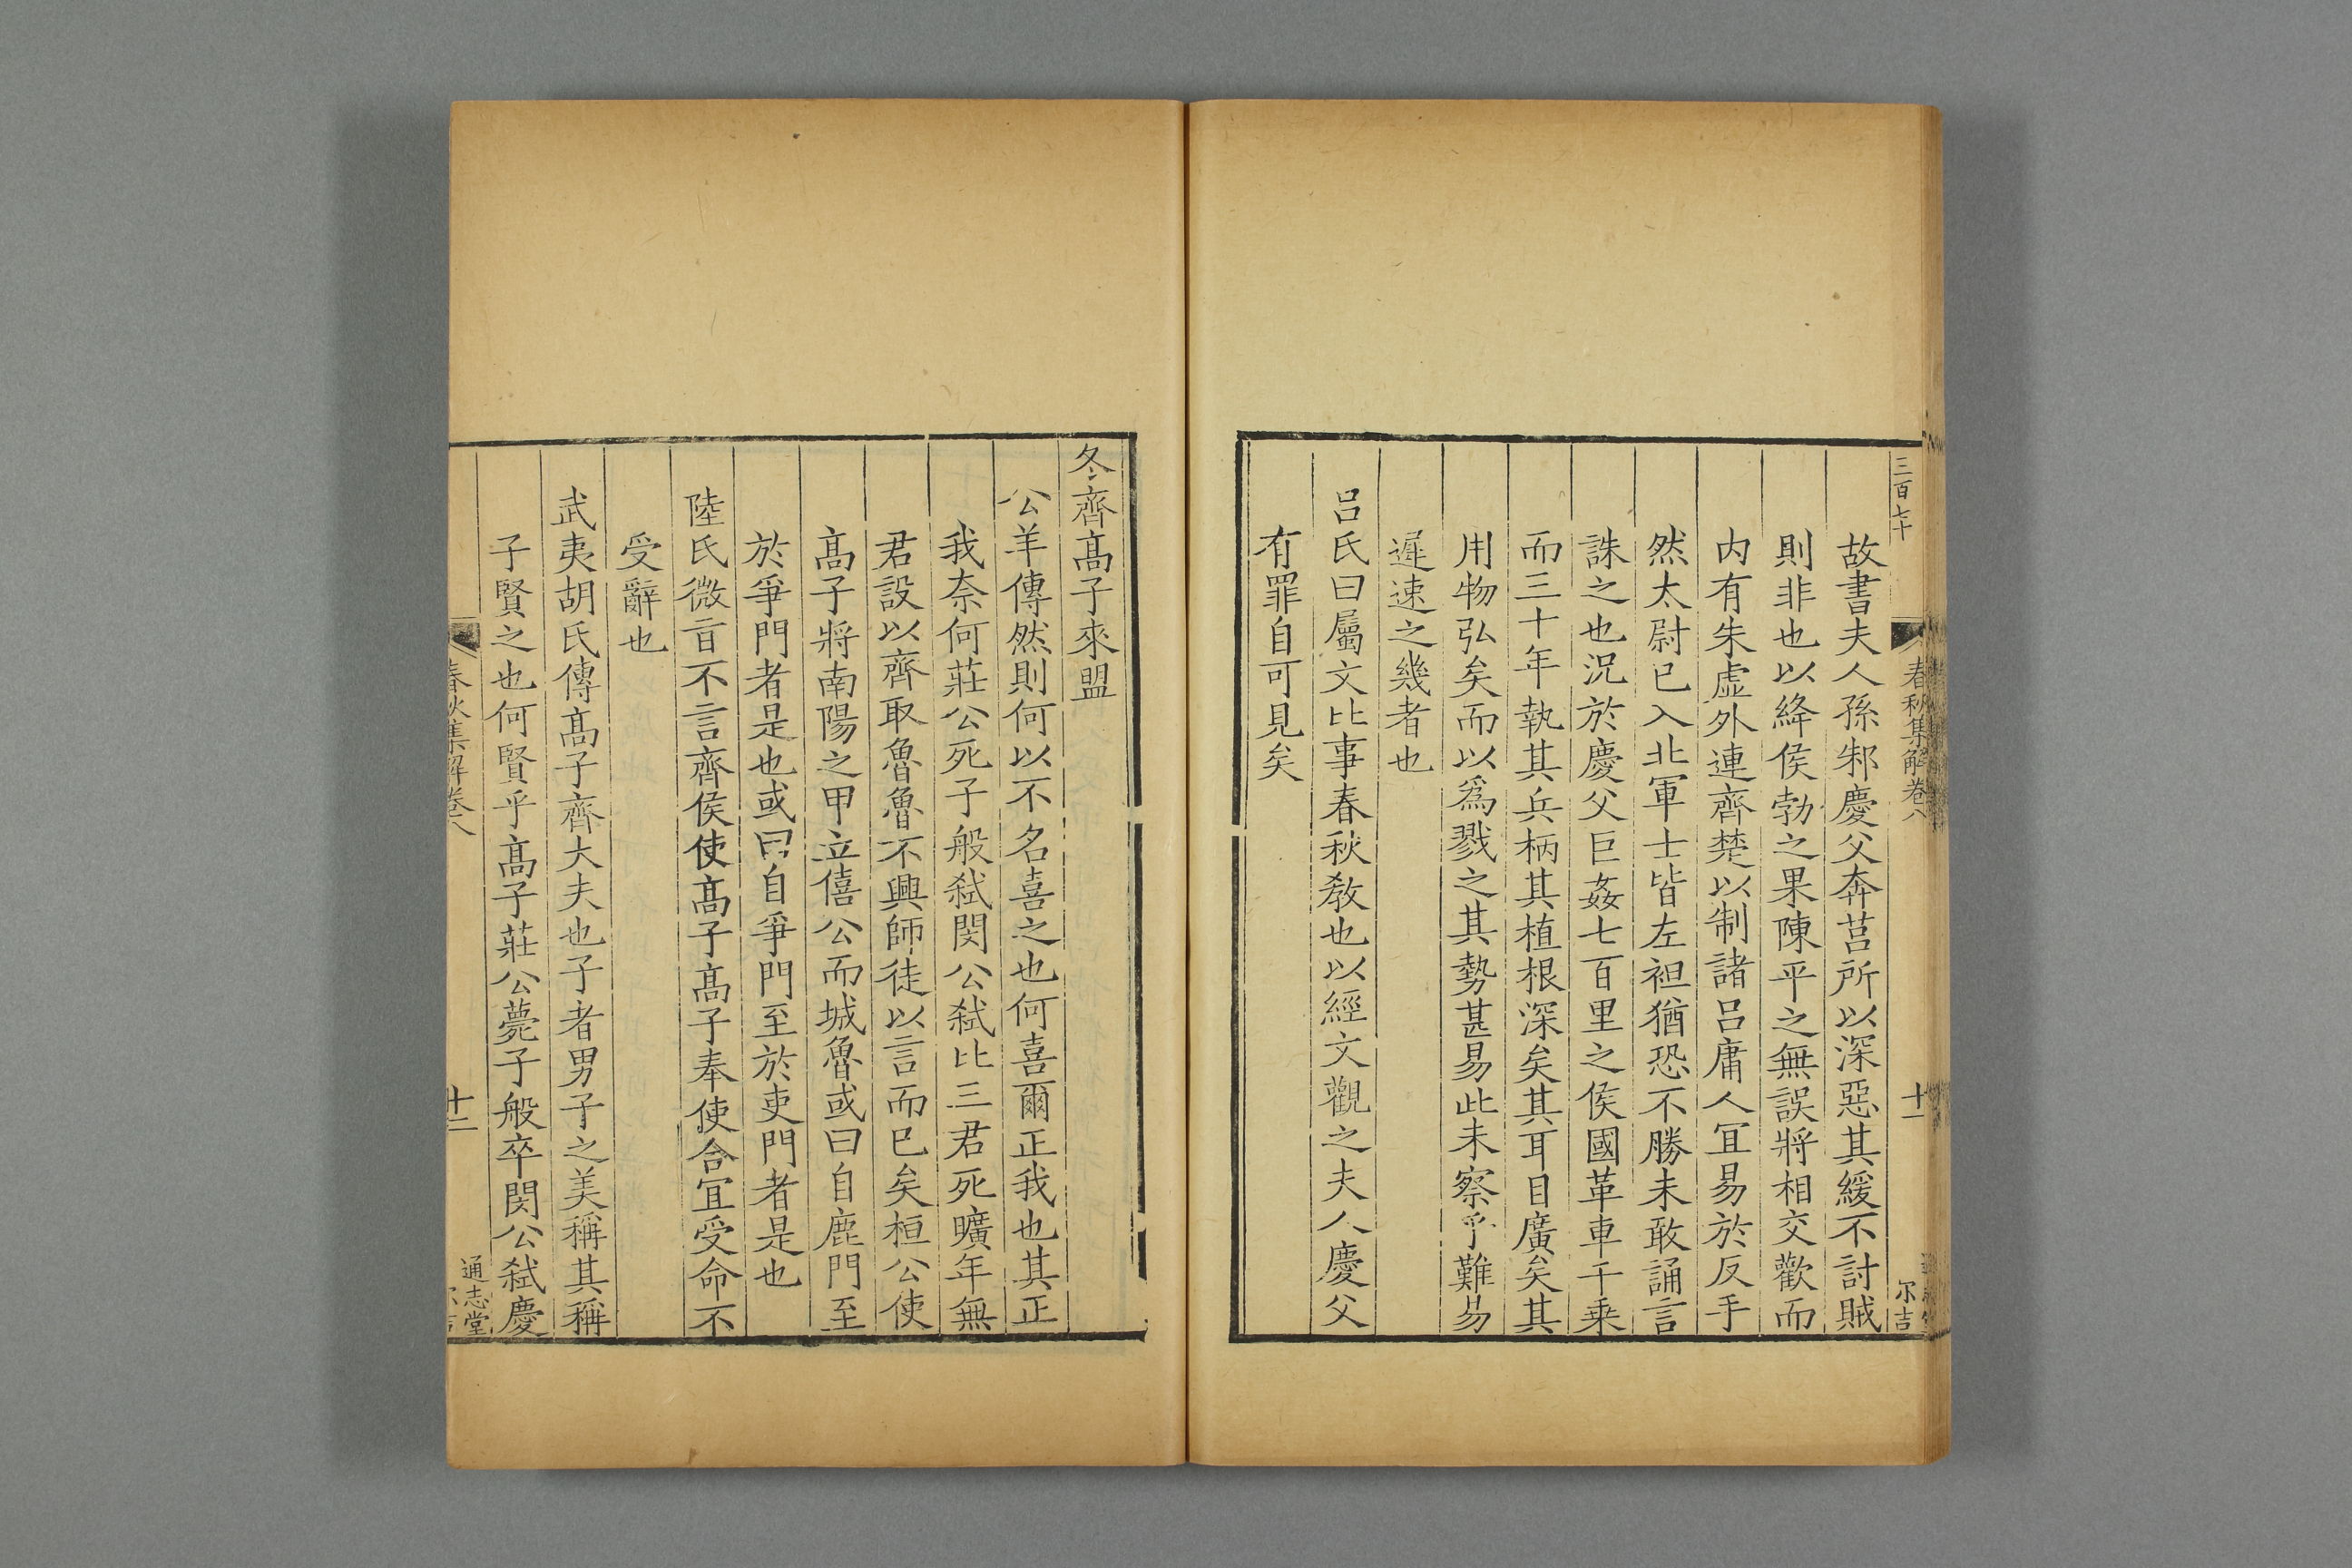 三百七十
春秋集解卷八
十一
尔吉
故書夫人孫邾慶父奔莒所以深惡其緩不討賊
則非也以絳侯勃之果陳平之無誤將相交歡而
内有朱虚外連齊楚以制諸吕庸人冝易於反手
然太尉已入北軍士皆左袒猶恐不勝未敢誦言
誅之也況於慶父巨姦七百里之侯國革車千乗
而三十年執其兵柄其植根深矣其耳目廣矣其
用物弘矣而以爲戮之其勢甚易此未察乎難易
遲速之幾者也
吕氏曰屬文比事春秋教也以經文觀之夫人慶父
有罪自可見矣
冬齊髙子來盟
公羊傳然則何以不名喜之也何喜爾正我也其正
我奈何莊公死子般弑閔公弑比三君死曠年無
君設以齊取魯魯不興師徒以言而已矣桓公使
髙子將南陽之甲立僖公而城魯或曰自鹿門至
於爭門者是也或曰自爭門至於吏門者是也
陸氏微㫖不言齊侯使髙子髙子奉使合冝受命不
受辭也
武夷胡氏傳髙子齊大夫也子者男子之美稱其稱
子賢之也何賢乎髙子莊公薨子般卒閔公弑慶
春秋集解卷八
十二
通志堂